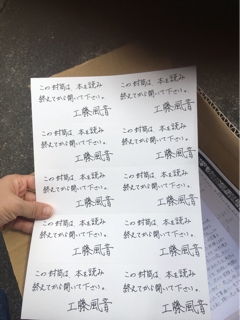 この封筒は 本を読み
終えてから開いて下さい。
工藤風音
この封筒は 本を読み
終えてから開いて下さい。
工藤風音
この封筒は 本を読み
終えてから開いて下さい。
工藤風音
この封筒は 本を読み
終えてから開いて下さい。
工藤風音
この封筒は 本を読み
終えてから開いて下さい。
工藤風音
この封筒は 本を読み
終えてから開いて下さい。
工藤風音
この封筒は 本を読み
終えてから開いて下さい。
工藤風音
この封筒は 本を読み
終えてから開いて下さい。
工藤風音
この封筒は 本を読み
終えてから開いて下さい。
工藤風音
この封筒は 本を読み
終えてから開いて下さい。
工藤風音